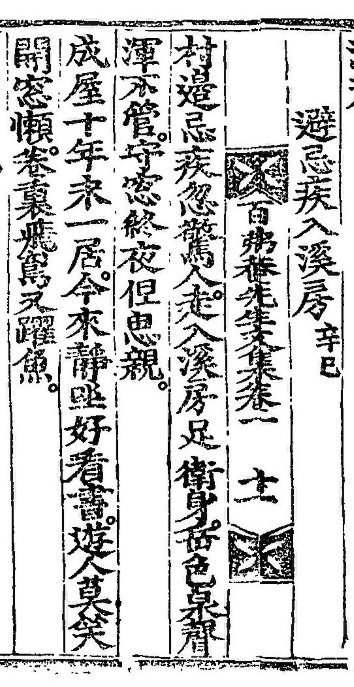 避忌疾入溪房 辛巳
百弗菴先生文集卷一 十一
村邉忌疾忽驚人。走入溪房足衛身。岳色泉聲
渾不管。守窓終夜但思親。
成屋十年未一居。今來靜坐好看書。遊人莫笑
開窓懶。卷裏飛鳶又躍魚。